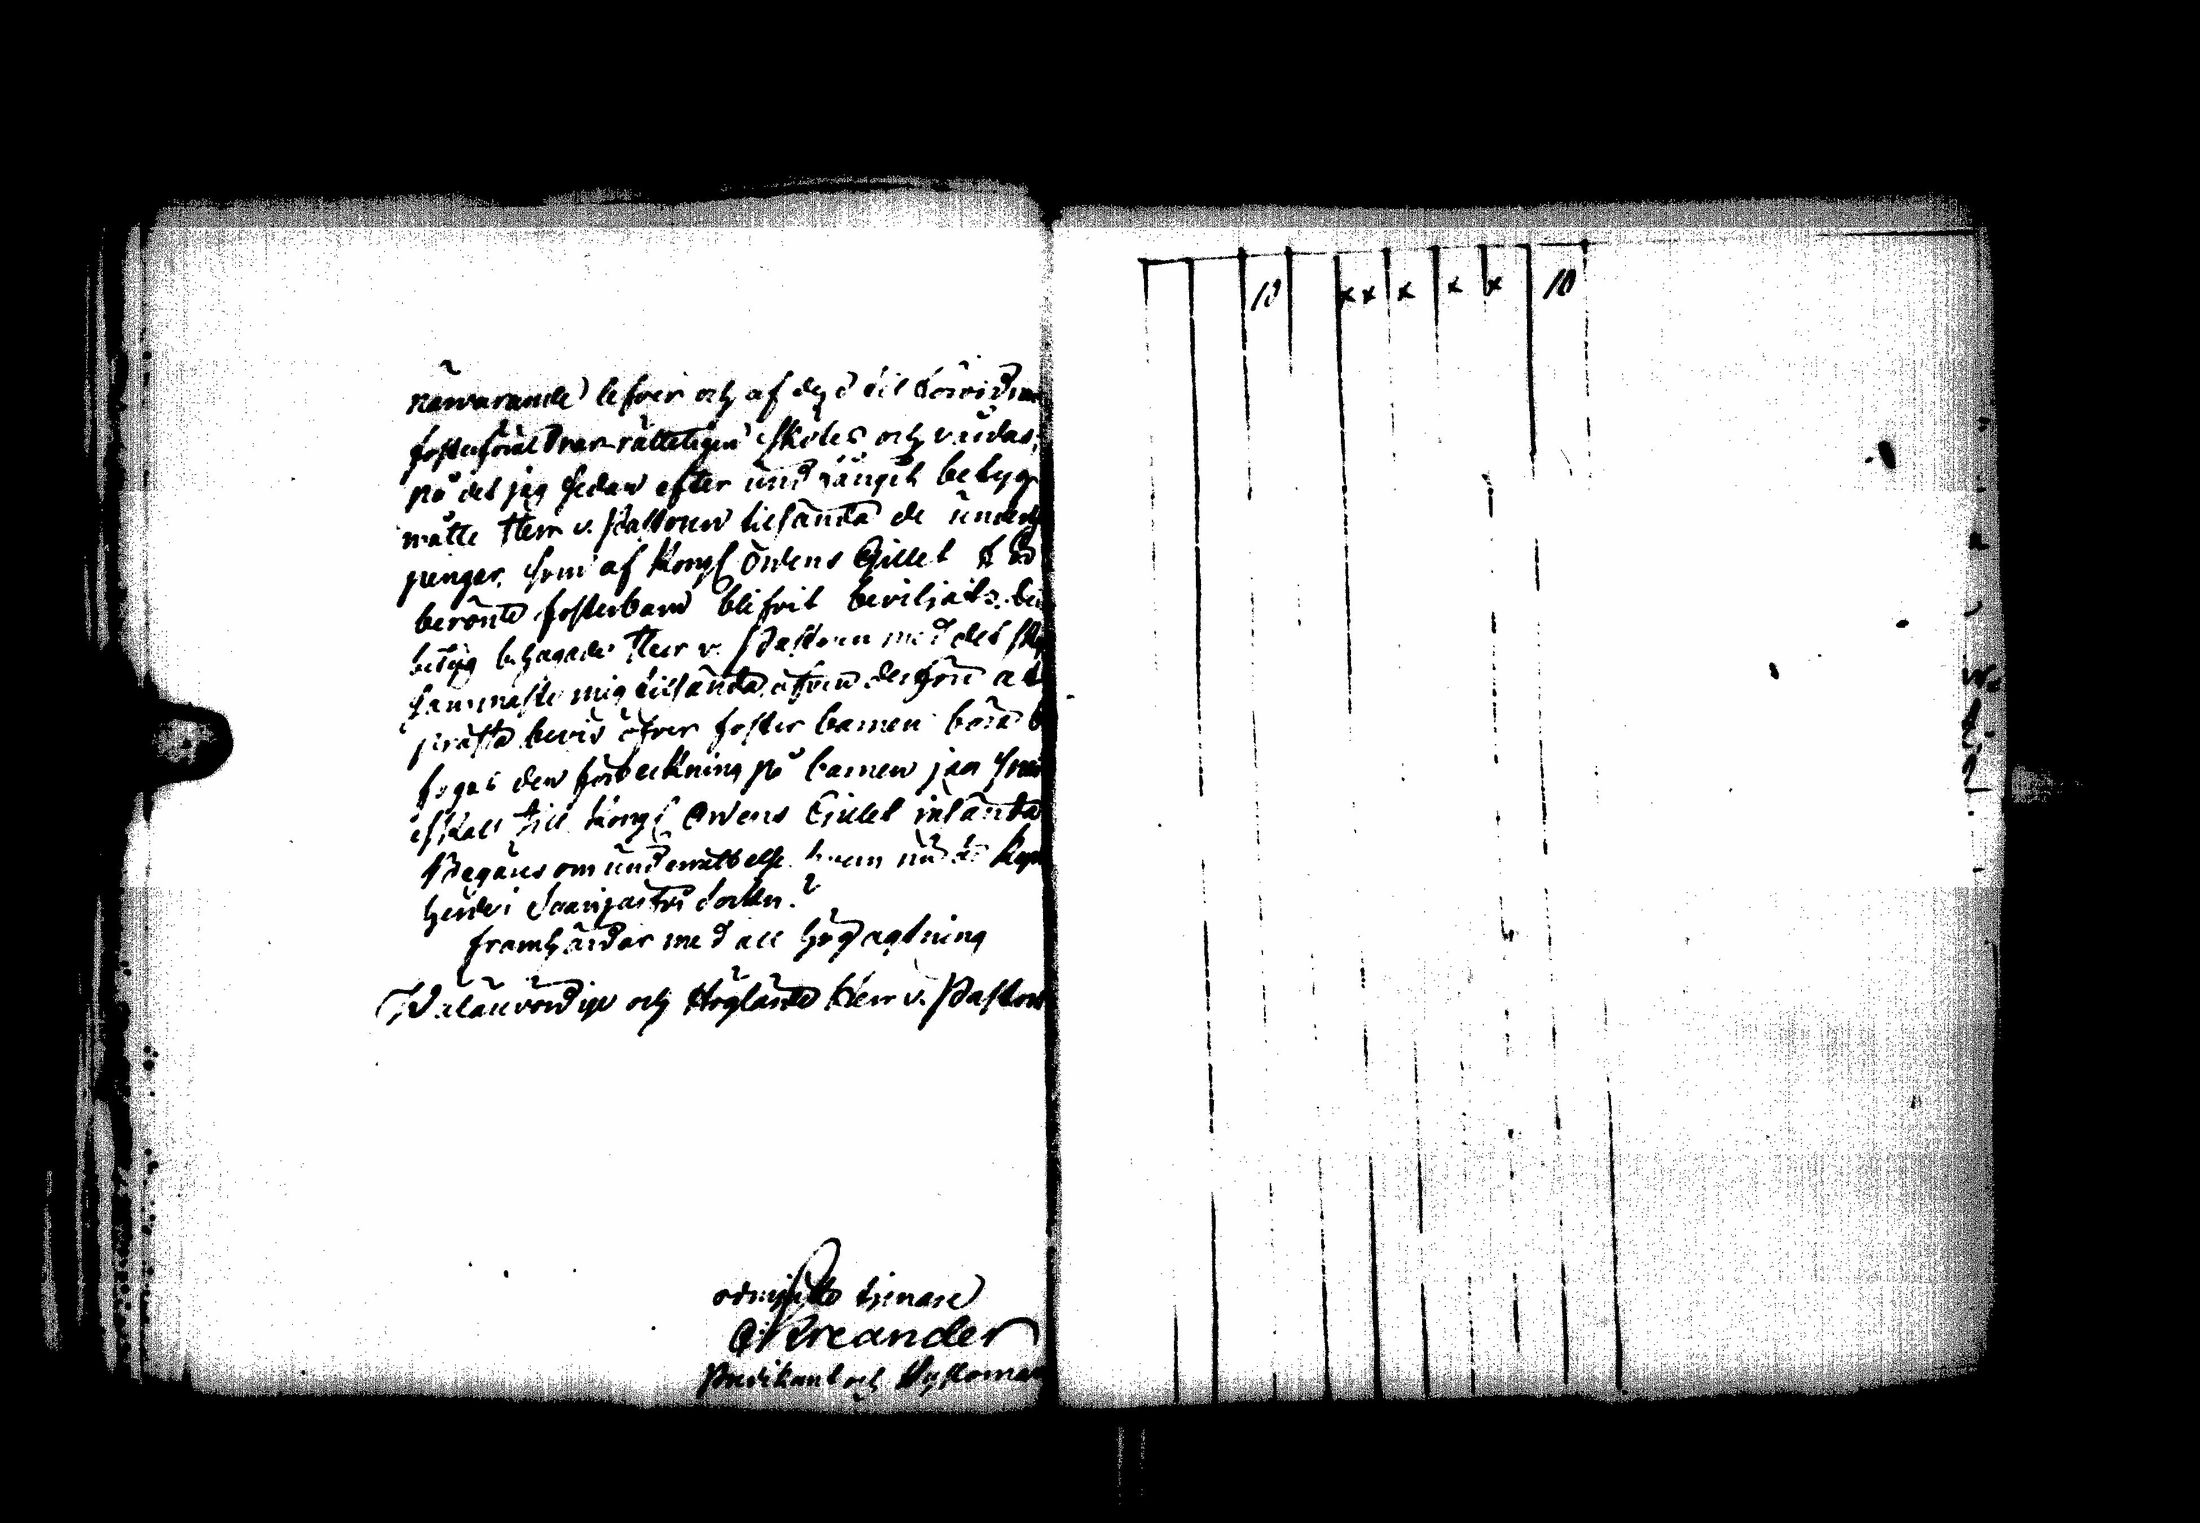 närvarande lefver och af des til
fosterföräldrar rätteligen skötes och vårdas;
på det jag sedan efter undfånget betyg
måtte Herr v. Pastoren tilsända de underh
penger, som af Kongl Ordens Gillet
berörde fosterbarn blifvit beviljats. De
betyg behagade Herr v. Pastoren med det
sammaste mig tilsända, äfven derföre at
prästa bevis öfver foster barnen böra b
fogas den förteckning på barnen jag
skall till Kongl Ordens Gillet insända
Begäres om underrättelse hvem nu är
herde i Saarijärvi Socken?
framhärdar med all högagtning
Wälärevördige och Höglärde Herr v. Pastor
ödmjuke tjenare
Kreander
Predikant och Syssloman
10 x x x x x 10